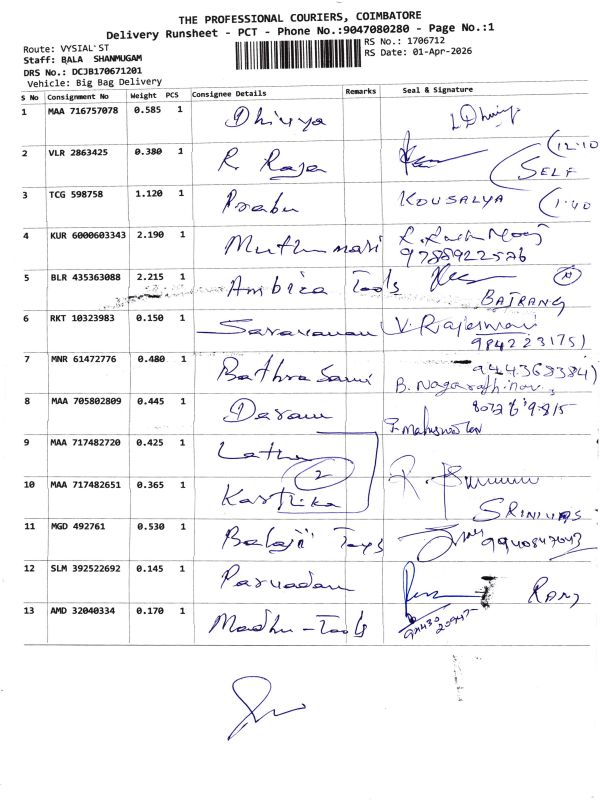 THE PROFESSIONAL COURIERS, COIMBATORE
Delivery Runsheet - PCT - Phone No.:9047080280 - Page No.:1
Route: VYSIAL ST
RS No.: 1706712
Staff: BALA SHANMUGAM
RS Date: 01-Apr-2026
DRS No.: DCJB170671201
Vehicle: Big Bag Delivery
S No Consignment No Weight PCS Consignee Details Remarks Seal & Signature
1 MAA 716757078 0.585 1 Dhivya
2 VLR 2863425 0.380 1 R. Raja SELF 12:10
3 TCG 598758 1.120 1 Prabu KOUSALYA 1:40
4 KUR 6000603343 2.190 1 Muthumari
9788922526
5 BLR 435363088 2.215 1 Ambica Tools
BAJRANG
6 RKT 10323983 0.150 1 Saravanan V. Rajeswari
9842231751
7 MNR 61472776 0.480 1 Bathrasami 9443683841
8 MAA 705802809 0.445 1
9 MAA 717482720 0.425 1 Latha
2
10 MAA 717482651 0.365 1 Karthika
SRINIVAS
11 MGD 492761 0.530 1 Balaji Toys 9940847043
12 SLM 392522692 0.145 1
13 AMD 32040334 0.170 1 Madhu - Tools